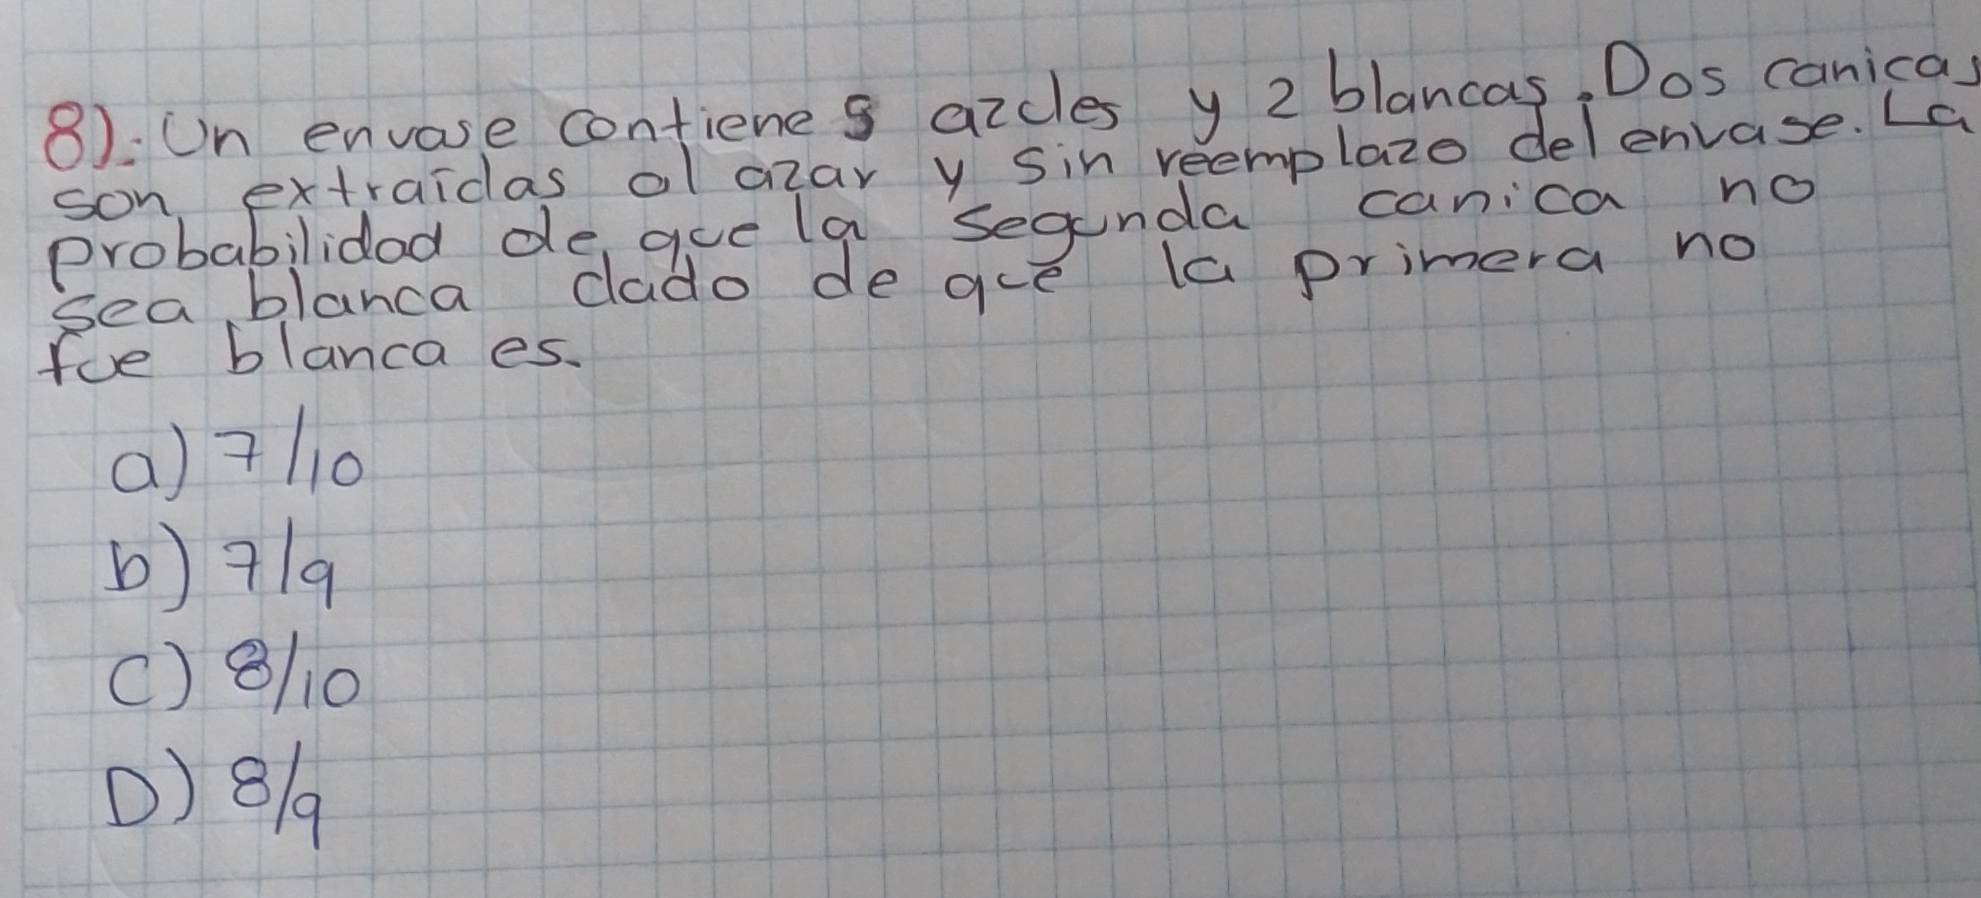 8). Un envase contiene 8 azules y 2 blancas. Dos canicas
son extraídas al azar y sin reemplazo del envase. La
probabilidad de que la segunda canica no
sea blanca dado de que la primera no
fue blanca es.
a) 7/10
b) 7/9
c) 8/10
D) 8/9